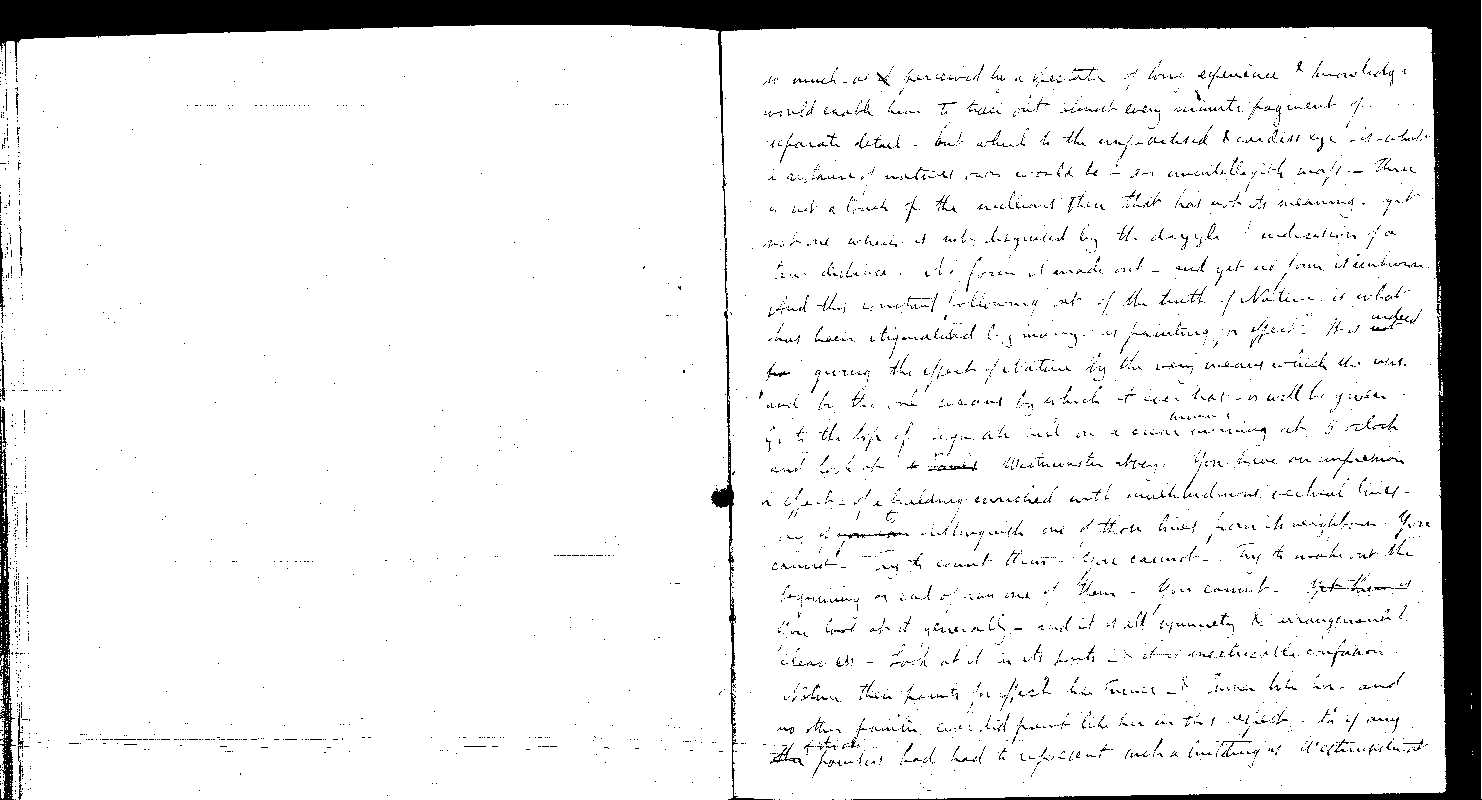 so much as perceived by a spectator of long experience & knowledge
would enable him to trace out almost every minute fragment of
separate detail - but which to the unpractised & careless eye - is - what
a distance of natures own would be - an unintelligible mass - there
is not a touch of the millions there that has not its meaning. yet
not one which is not disguised by the dazzle & indecision of a
true distance. No form is made out - and yet no form is unknown
And this constant following out of the truth of Nature is what
has been stigmatized by many as painting for effect. It is indeed
giving the effect of Nature by the very means which she uses.
and by the only means by which it ever has - or will be given.
Go to the top of Highgate hill on a clear summer's morning at 5 oclock
and look at Westminster abbey. You have an impression
or effect - of a building enriched with multitudinous vertical lines -
Try to distinguish one of those lines from its neighbour. You
cannot - Try to count them - You cannot - Try to make out the
beginning or end of any one of them - You cannot - Yet there is
You look at it generally - and it is all symmetry & arrangement &
clearness - Look at it in its parts - & it is inextricable confusion
Nature then paints for effect like Turner - & Turner like her - and
no other painter ever did paint like her in this respect. for if any
painters had had to represent such a building as Westminster